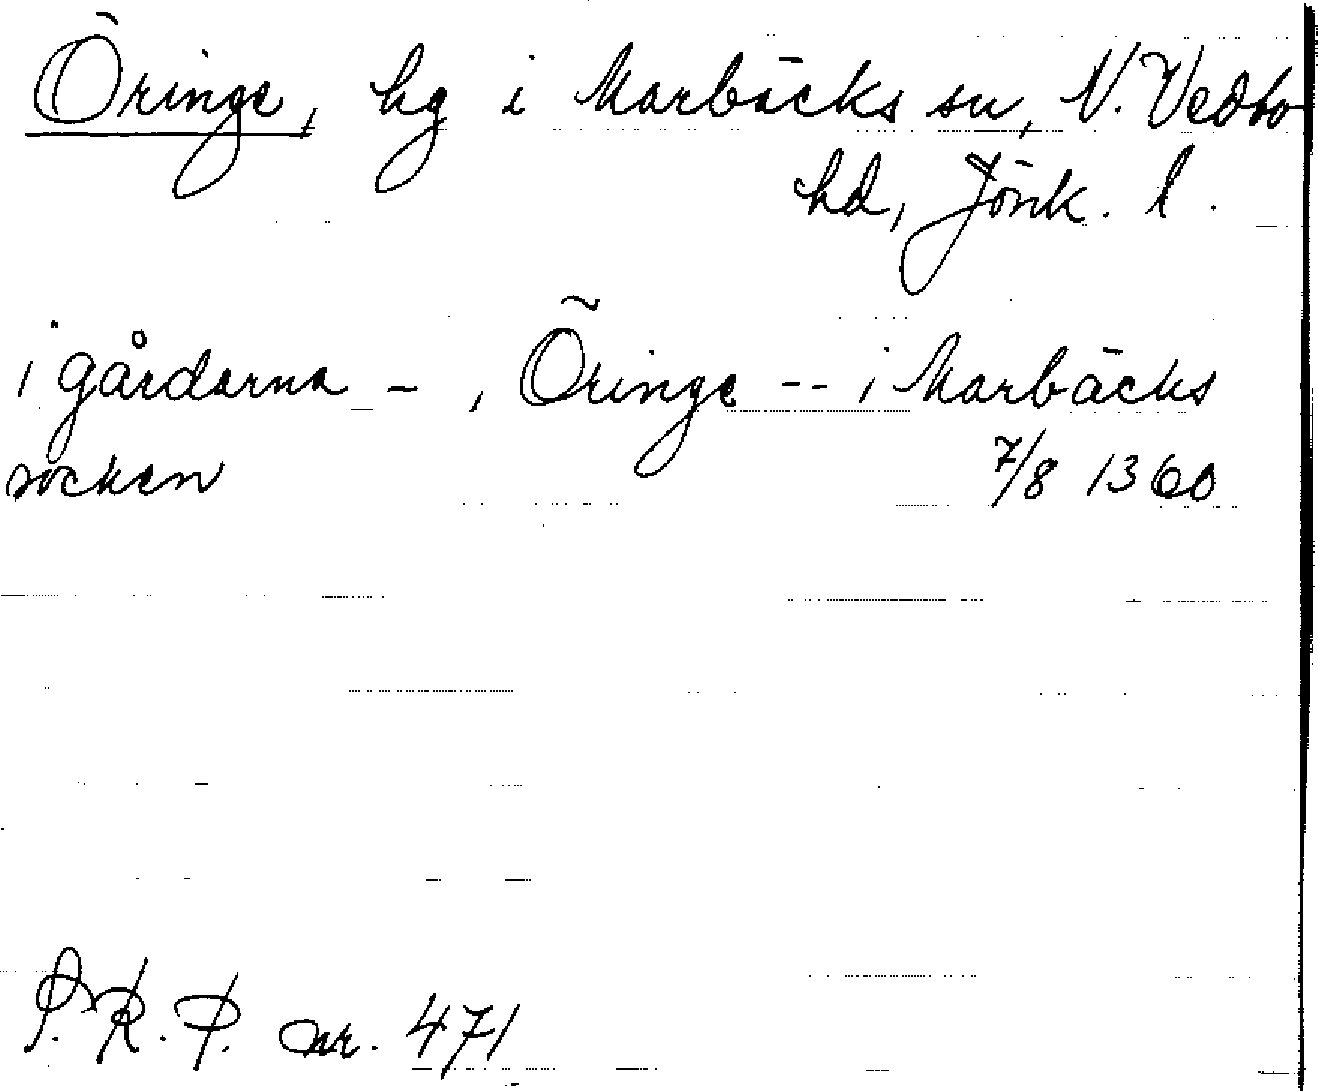 Öringe, hg i Marbäcks sn, N. Vedbo
hd, Jönk. l.
i gårdarna - , Öringe -- i Marbäcks
socken 7/8 1360
S.R.P. nr. 471